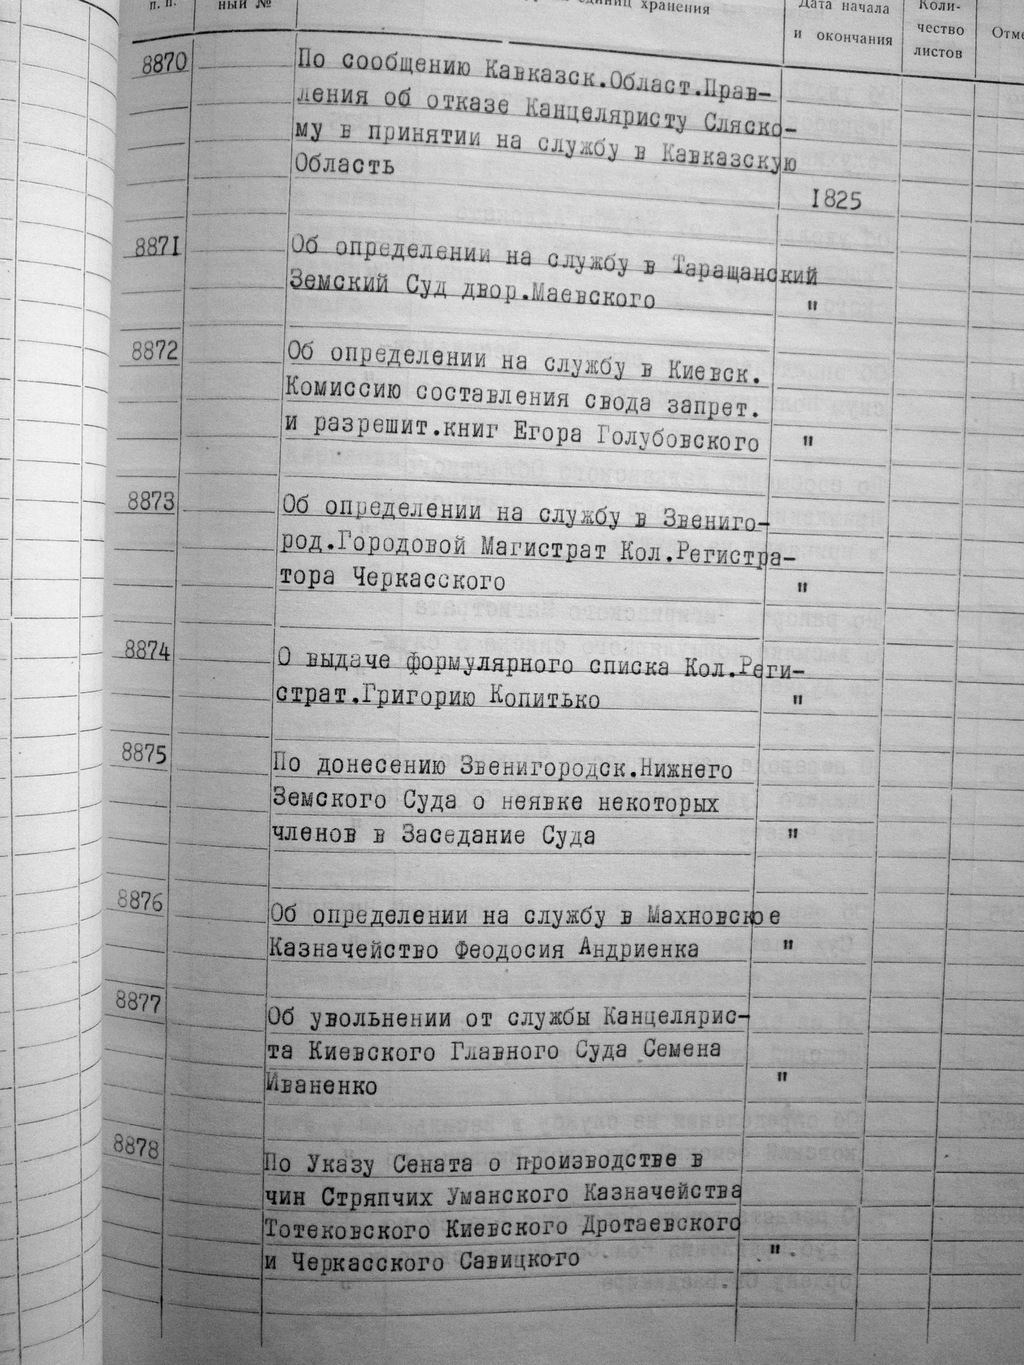 п. п.
ный №
единиц хранения
Дата начала
и окончания
Коли-
чество
листов
8870
По сообщению Кавказск.Област.Прав-
ления об отказе Канцеляристу Сляско-
му в принятии на службу в Кавказскую
Область
1825
8871
Об определении на службу в Таращанский
Земский Суд двор.Маевского "
8872
Об определении на службу в Киевск.
Комиссию составления свода запрет.
и разрешит.книг Егора Голубовского "
8873
Об определении на службу в Звениго-
род.Городовой Магистрат Кол.Регистра-
тора Черкасского "
8874
О выдаче формулярного списка Кол.Реги-
страт.Григорию Копитько "
8875
По донесению Звенигородск.Нижнего
Земского Суда о неявке некоторых
членов в Заседание Суда "
8876
Об определении на службу в Махновское
Казначейство Феодосия Андриенка "
8877
Об увольнении от службы Канцелярис-
та Киевского Главного Суда Семена
Иваненко "
8878
По Указу Сената о производстве в
чин Стряпчих Уманского Казначейства
Тотековского Киевского Дротаевского
и Черкасского Савицкого "